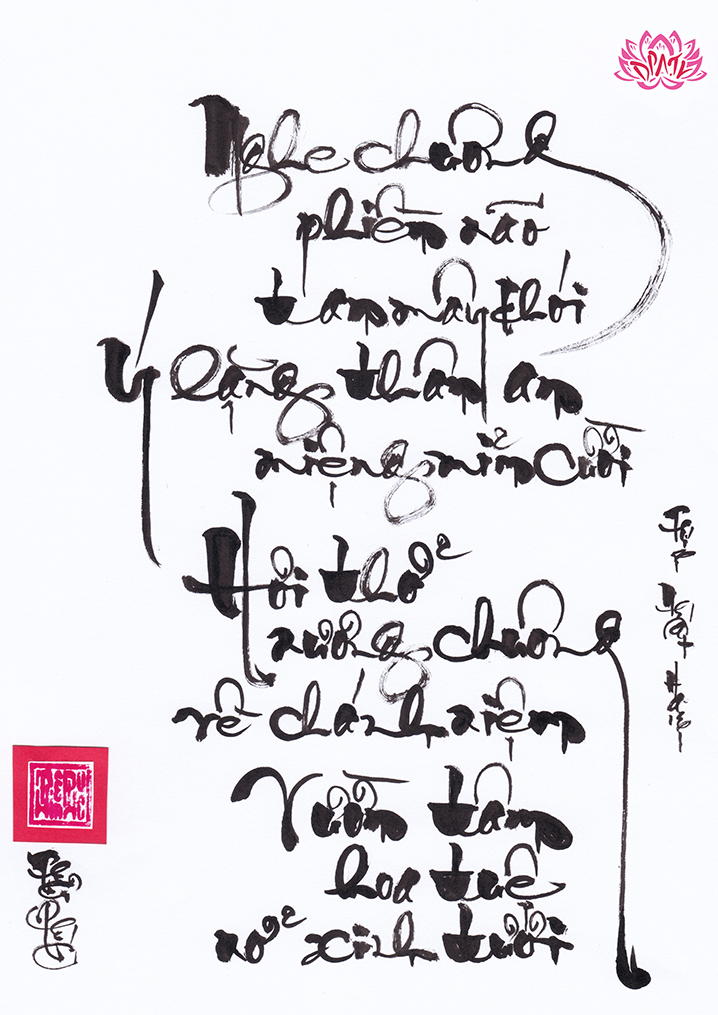 Nghe chuông
phiền não
tan mây khói
Ý lặng thân an
miệng mỉm cười
Hơi thở
nương chuông
về chánh niệm
Vườn tâm
hoa tuệ
nở xinh tươi